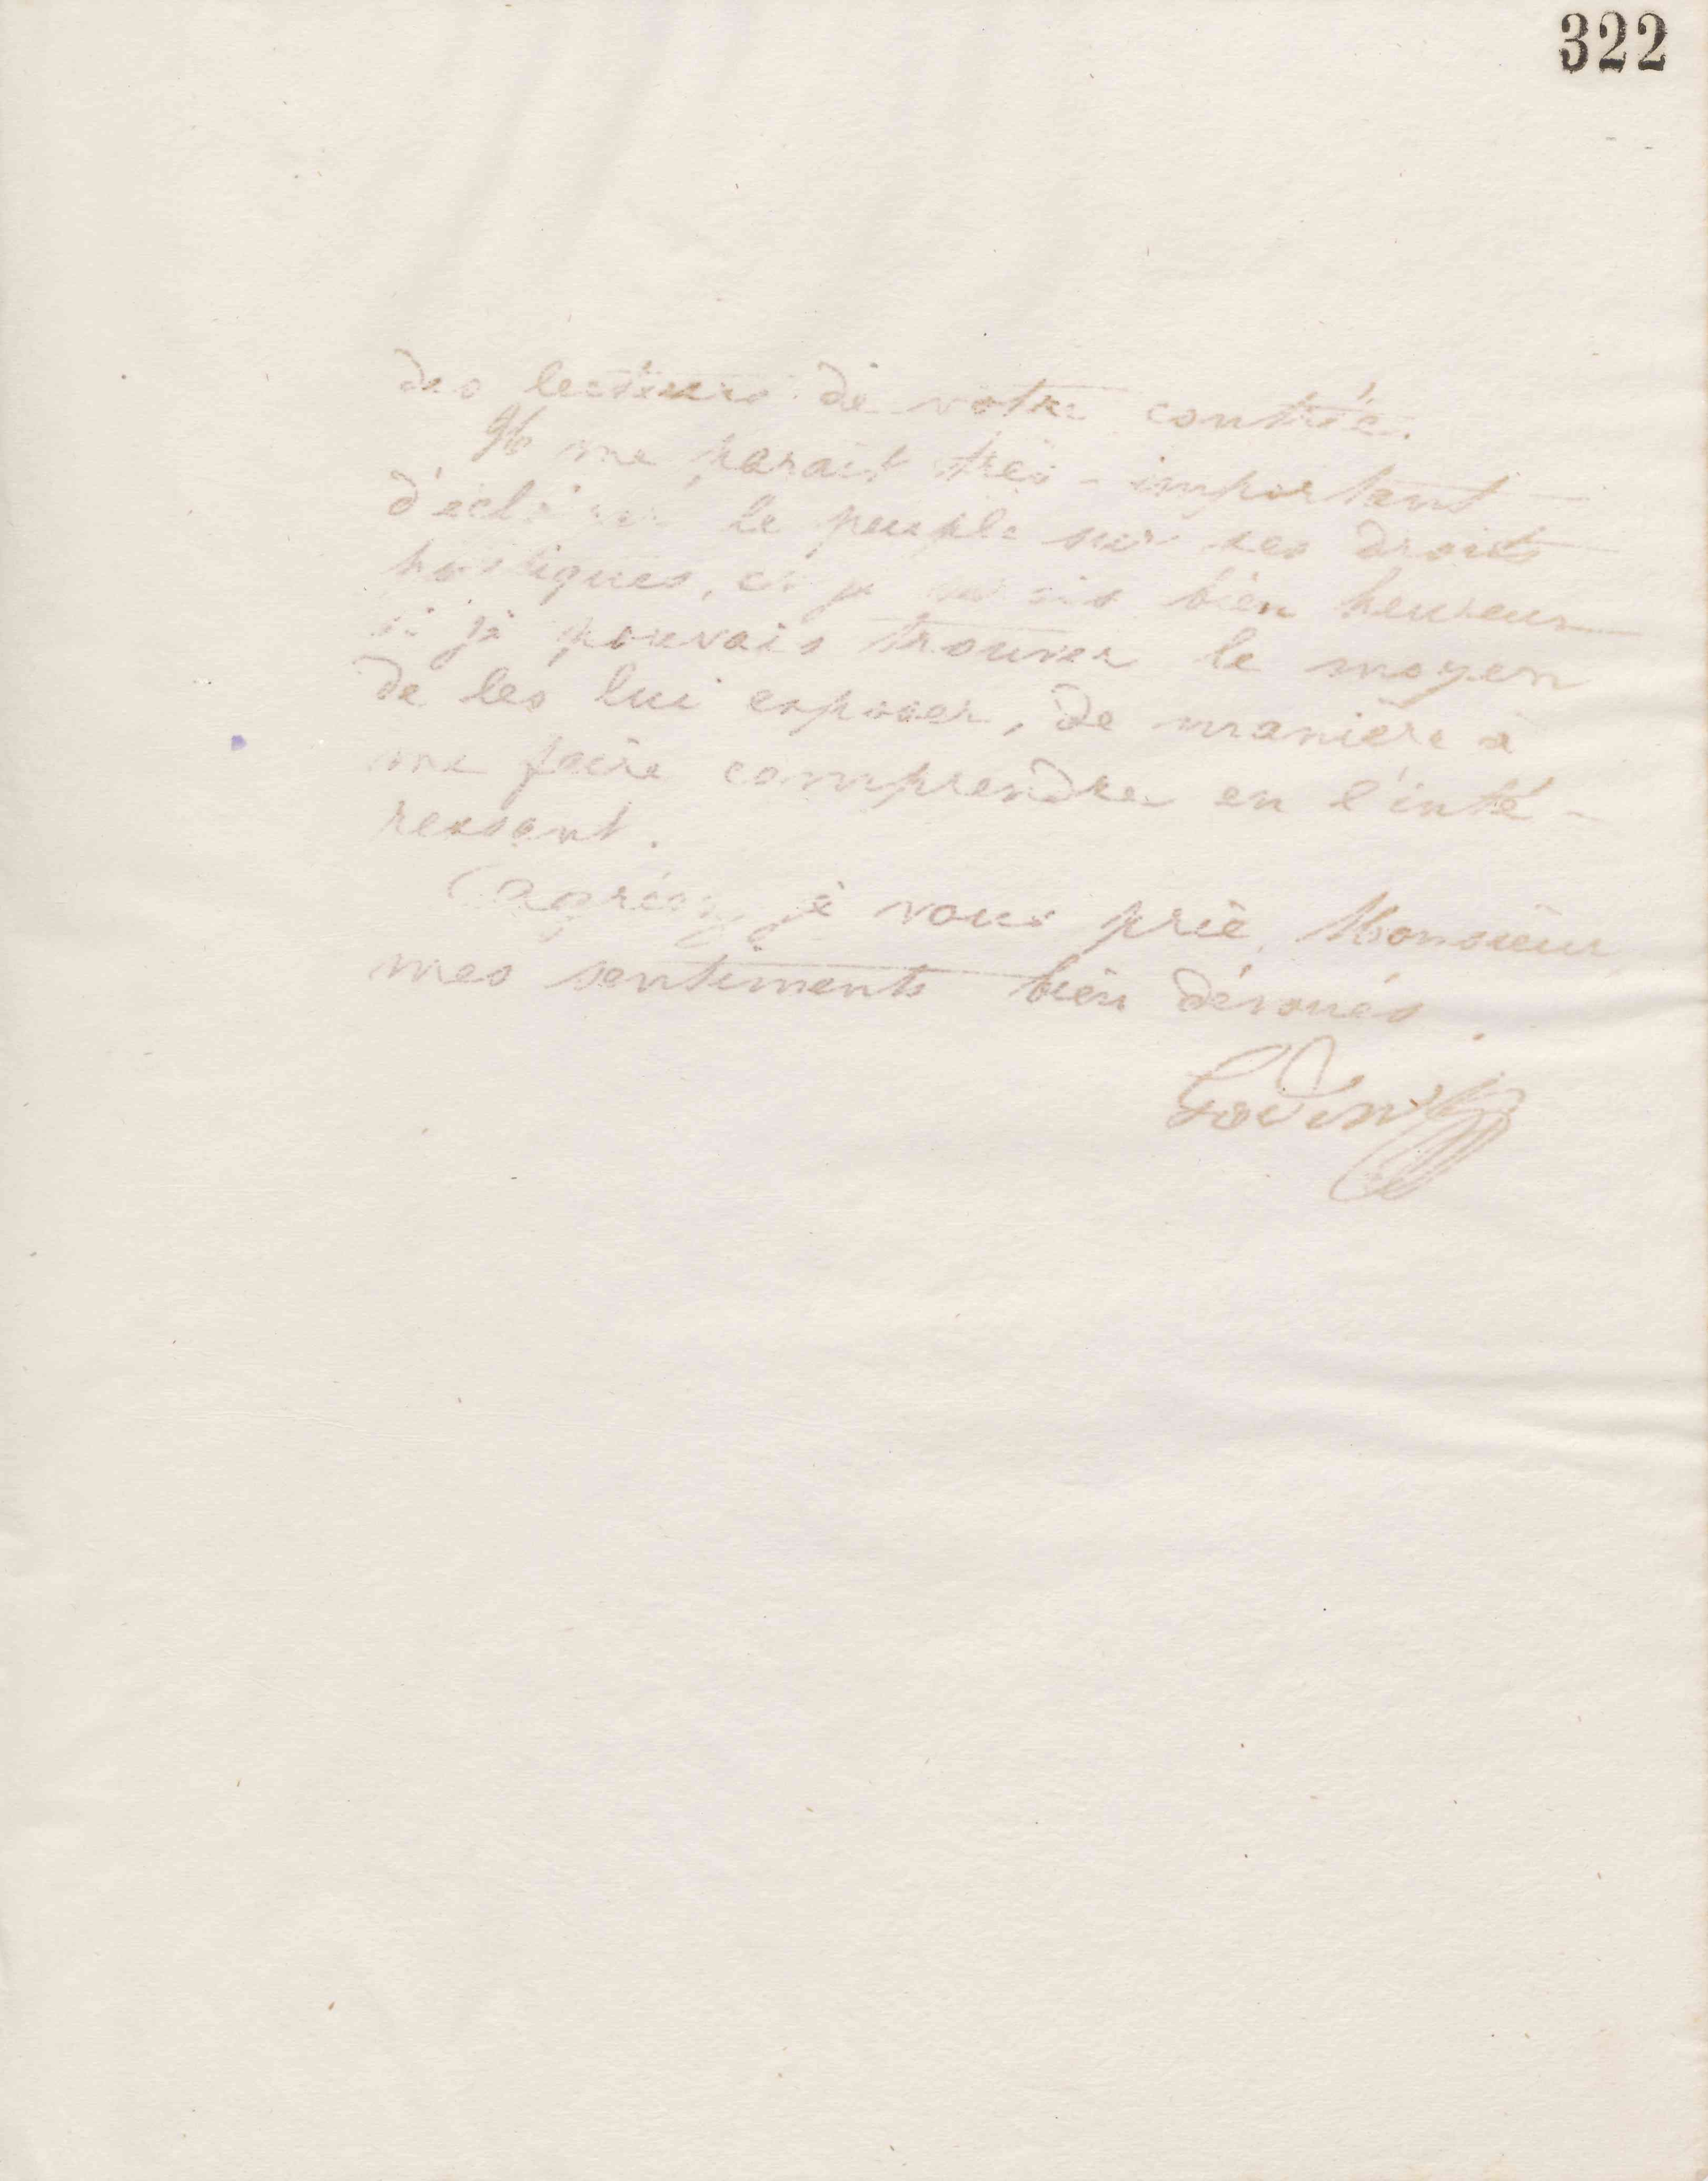 322
des lecteurs de votre contrée.
Il me parait très-important
d'éclairer le peuple sur ses droits
politiques, et je serais bien heureux
si je pouvais trouver le moyen
de les lui exposer, de manière à
me faire comprendre en l'inté-
ressant.
Agréez, je vous prie, Monsieur
mes sentiments bien dévoués.
Godin